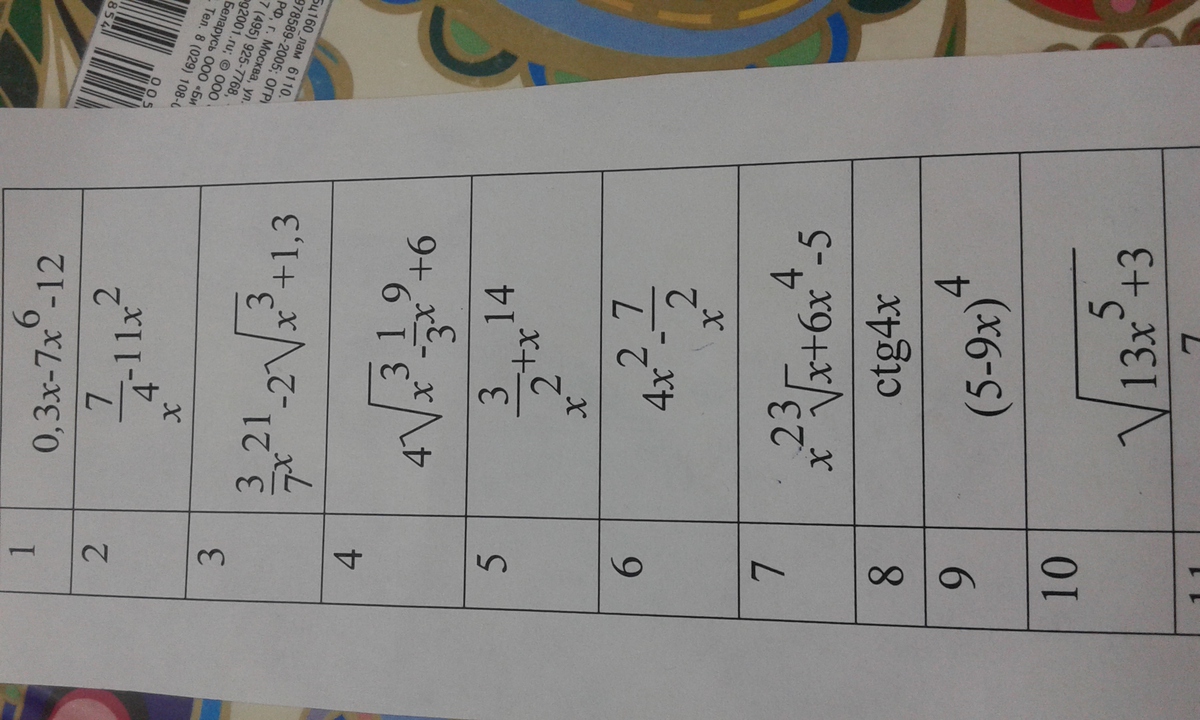 1 0,3x-7x^6-12
2 7/x^4-11x^2
3 3/7x^21-2√x^3+1,3
4 4√x^3-1/3x^9+6
5 3/x^2+x^14
6 4x^2-7/x^2
7 x^2 3√x+6x^4-5
8 ctg4x
9 (5-9x)^4
10 √13x^5+3
11 7
6110,
978589-2005; ОГР
РФ, г. Москва, ул.
7 (495) 925-7768,
g2001.ru; © ООО
Беларусь ООО «Би
Тел. 8 (029) 108-
854
005